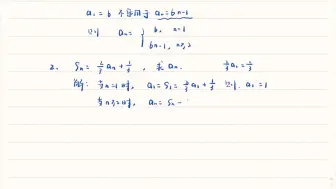 a₁ = 6 不适用于 aₙ = 6n-1
∴ aₙ = { 6, n=1
6n-1, n≥2
2. Sₙ = 2/3 aₙ + 1/3, 求 aₙ 2/3 a₁ = 1/3
解: 当 n=1 时, a₁ = S₁ = 2/3 a₁ + 1/3 则 a₁ = 1
当 n≥2 时, aₙ = Sₙ -